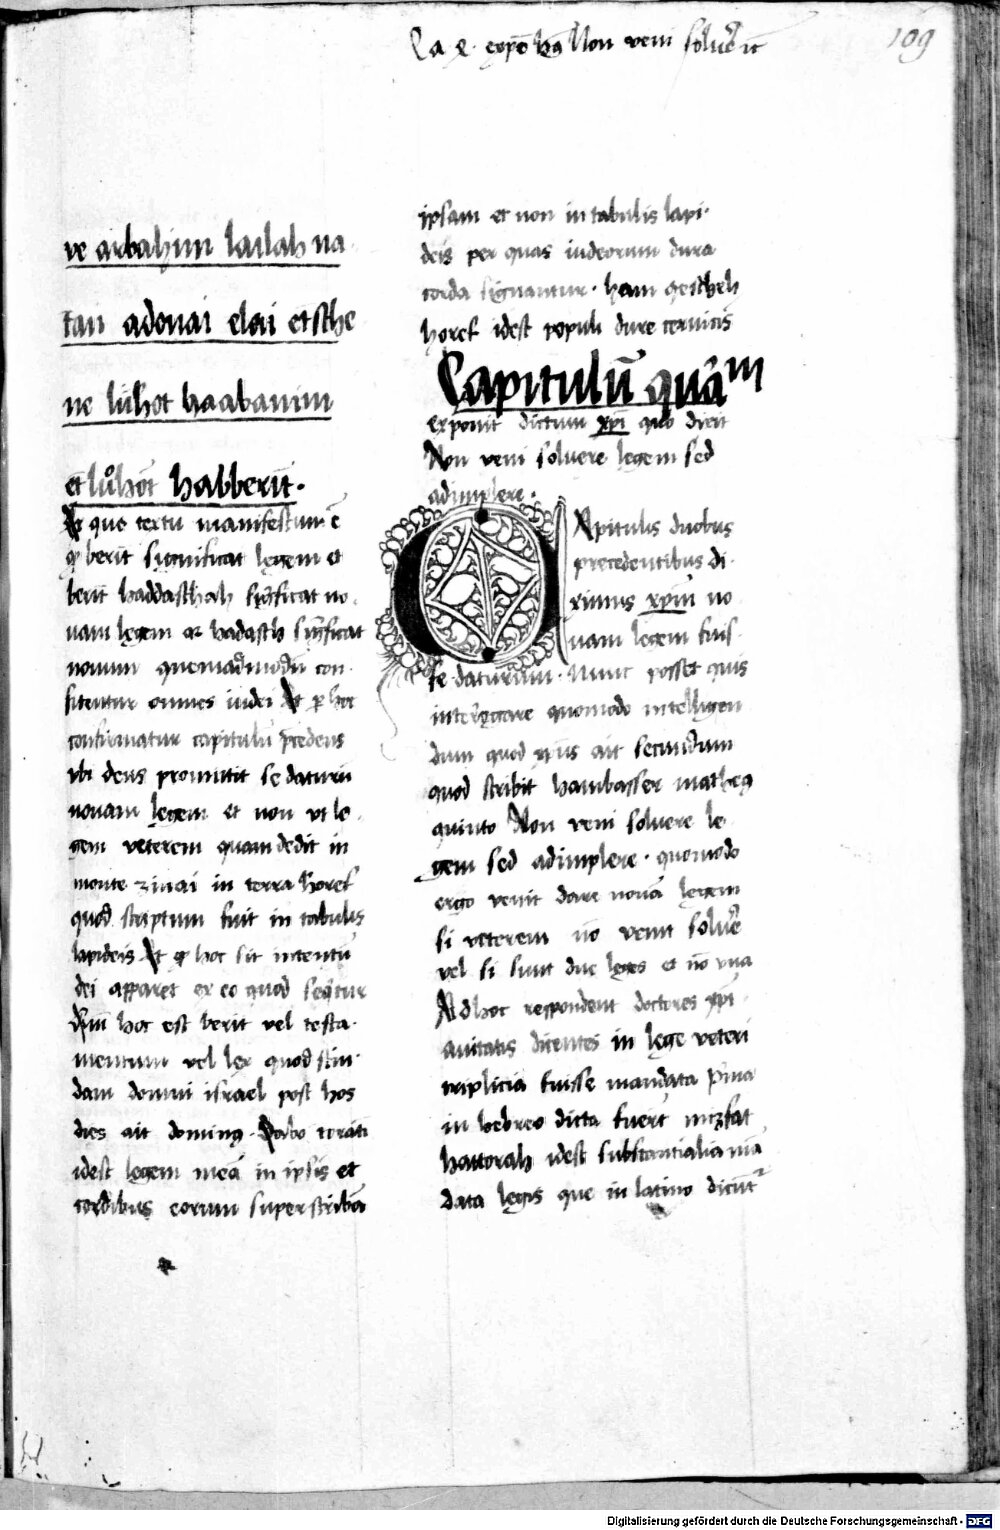 Ca 2 · expo hā Non veni soluē ic̄
109
ve arbahim lailah na
tan adonai elai et sche
ne lūhot haabanim
et lůhōt habberit̄ ·
Ex quo textu manifestum ē
qꝫ berit significat legem et
berit haddaschah sigficat no
uam legem qꝛ hadasch sigficat
nouum quemadmodū con
fitentur omnes iudei Et ꝑ hoc
confirmatur capitulū p̄cedens
vbi deus promittit se daturū
nouam legem et non vt le
gem veterem quam dedit in
monte zinai in terra horef
quod scriptum fuit in tabulis
lapideis Et qꝫ hoc sit intentū
dei apparet ex eo quod seqītur
hoc est berit vel testa
mentum vel lex quod scin
dam domui israel post hos
dies ait dominꝰ · Dabo torati
idest legem meā in ipsis et
cordibus eorum superscribā
ipsam et non in tabulis lapi
deis per quas iudeorum dura
corda signantur · ham gescheh
horef idest populi dure ceruicis
Capitulū quā m
exponit dictum xp̄i quo dicit
Non veni soluere legem sed
adimplere ·
Capitulis duobus
precedentibus di
ximus xp̄m no
uam legem fuis
se daturum · Nunc posset quis
interrogare quomodo intelligen
dum quod xp̄us ait secundum
quod scribit hambasser matheꝰ
quinto Non veni soluere le
gem sed adimplere · quomodo
ergo venit dare nouā legem
si veterem nō venit soluē
vel si sunt due leges et nō vna
Ad hoc respondent doctores xp̄i
anitatis dicentes in lege veteri
triplicia fuisse mandata p̄ma
in hebreo dicta fuerūt mizfat
hattorah idest substantialia mā
data legis que in latino dicūtꝛ